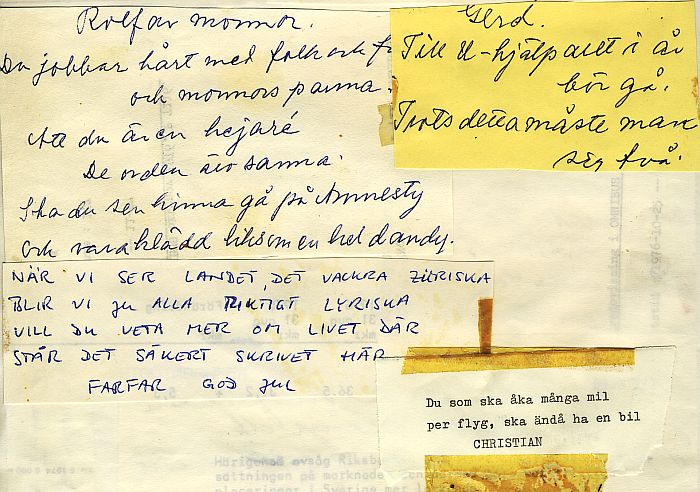 Rolf av mormor.
Du jobbar hårt med folk och f
och mormors panna.
Att du är en hejaré
De orden äro sanna.
Ska du sen hinna gå på Amnesty
och vara klädd liksom en hel dandy.
Gerd.
Till U-hjälp allt i år
bör gå.
Trots detta måste man
sig två.
NÄR VI SER LANDET, DET VACKRA ZÜRISKA
BLIR VI JU ALLA RIKTIGT LYRISKA
VILL DU VETA MER OM LIVET DÄR
STÅR DET SÄKERT SKRIVET HÄR
FARFAR GOD JUL
Du som ska åka många mil
per flyg, ska ändå ha en bil
CHRISTIAN